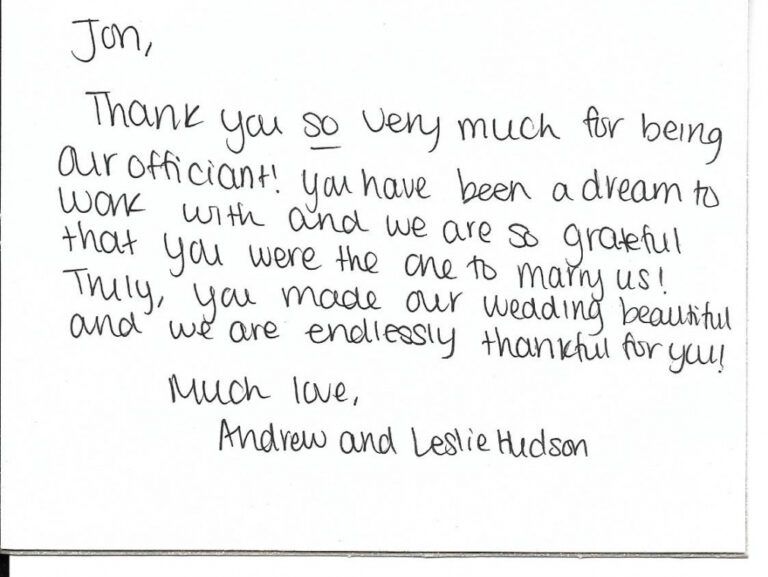 Jon,
Thank you so very much for being
our officiant! you have been a dream to
work with and we are so grateful
that you were the one to marry us!
Truly, you made our wedding beautiful
and we are endlessly thankful for you!
Much love,
Andrew and Leslie Hudson